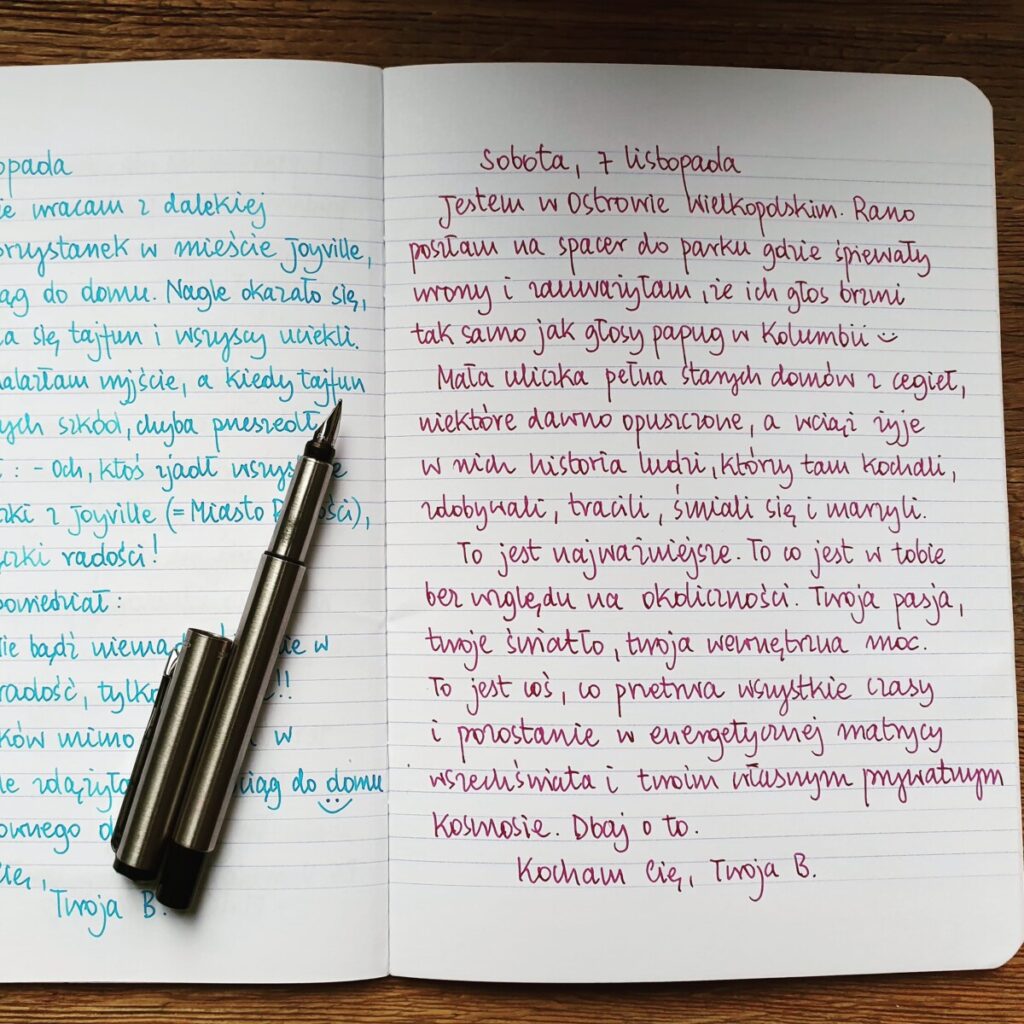 opada
ie wracam z dalekiej
rzystanek w mieście Joyville,
ąg do domu. Nagle okazało się,
a się tajfun i wszyscy uciekli.
alazłam wyjście, a kiedy tajfun
ych szkód, chyba przeszedł
: - Och, ktoś zjadł
zki z Joyville (= Miasto
czki radości!
powiedział:
ie bądź w
radość, !!
ków mimo w
le do domu
ownego
Cię,
Twoja B.
Sobota, 7 listopada
Jestem w Ostrowie Wielkopolskim. Rano
poszłam na spacer do parku gdzie śpiewały
wrony i zauważyłam, że ich głos brzmi
tak samo jak głosy papug w Kolumbii
Mała uliczka pełna starych domów z cegieł,
niektóre dawno opuszczone, a wciąż żyje
w nich historia ludzi, którzy tam kochali,
zdobywali, tracili, śmiali się i marzyli.
To jest najważniejsze. To co jest w tobie
bez względu na okoliczności. Twoja pasja,
twoje światło, twoja wewnętrzna moc.
To jest coś, co przetrwa wszystkie czasy
i pozostanie w energetycznej matrycy
wszechświata i twoim własnym prywatnym
kosmosie. Dbaj o to.
Kocham Cię, Twoja B.